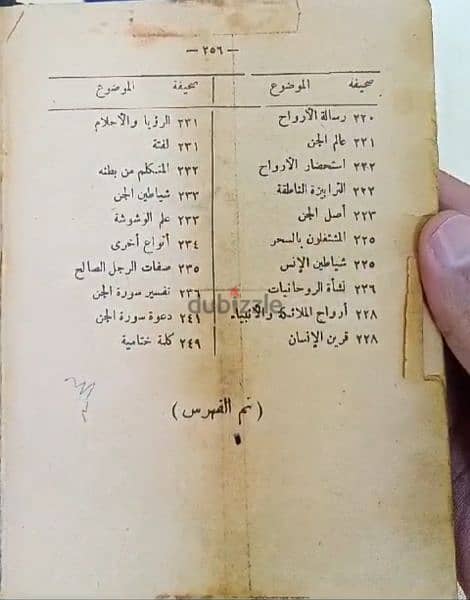 — ٢٥٦ —
صحيفة الموضوع
٢٢٠ رسالة الأرواح
٢٢١ عالم الجن
٢٢٢ استحضار الأرواح
٢٢٢ الترابيزة الناطقة
٢٢٣ أصل الجن
٢٢٥ المشتغلون بالسحر
٢٢٥ شياطين الإنس
٢٢٦ نشأة الروحانيات
٢٢٨ أرواح الملائكة والأنبياء
٢٢٨ قرين الإنسان
صحيفة الموضوع
٢٣١ الرؤيا والأحلام
٢٣١ لفتة
٢٣٢ المتكلم من بطنه
٢٣٣ شياطين الجن
٢٣٣ علم الوشوشة
٢٣٤ أنواع أخرى
٢٣٥ صفات الرجل الصالح
٢٣٦ تفسير سورة الجن
٢٤١ دعوة سورة الجن
٢٤٩ كلمة ختامية
( تم الفهرس )
dubizzle